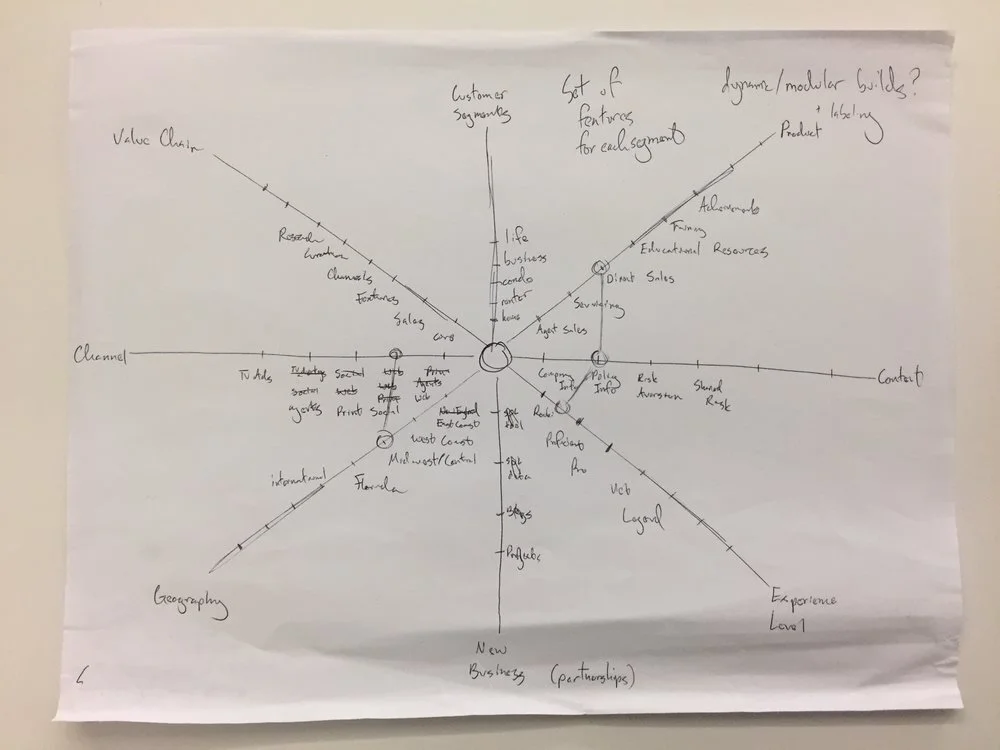 Customer
Segments
Set of
features
for each segment
dynamic/modular builds?
+ labeling
Product
Value Chain
Achievements
Training
Educational Resources
Direct Sales
Servicing
Agent Sales
life
business
condo
renter
home
Research
Curation
Channels
Features
Sales
core
Channel
Content
TV Ads
Social
Web
Print
Social
Web
Web
Agents
agents
Print
Print
Social
Web
Company
Info
Policy
Info
Risk
Aversion
Shared
Risk
New England
East Coast
West Coast
Midwest/Central
Florida
international
Geography
data
Blogs
Proficient
Pro
Vet
Legend
Experience
Level
New
Business (partnerships)